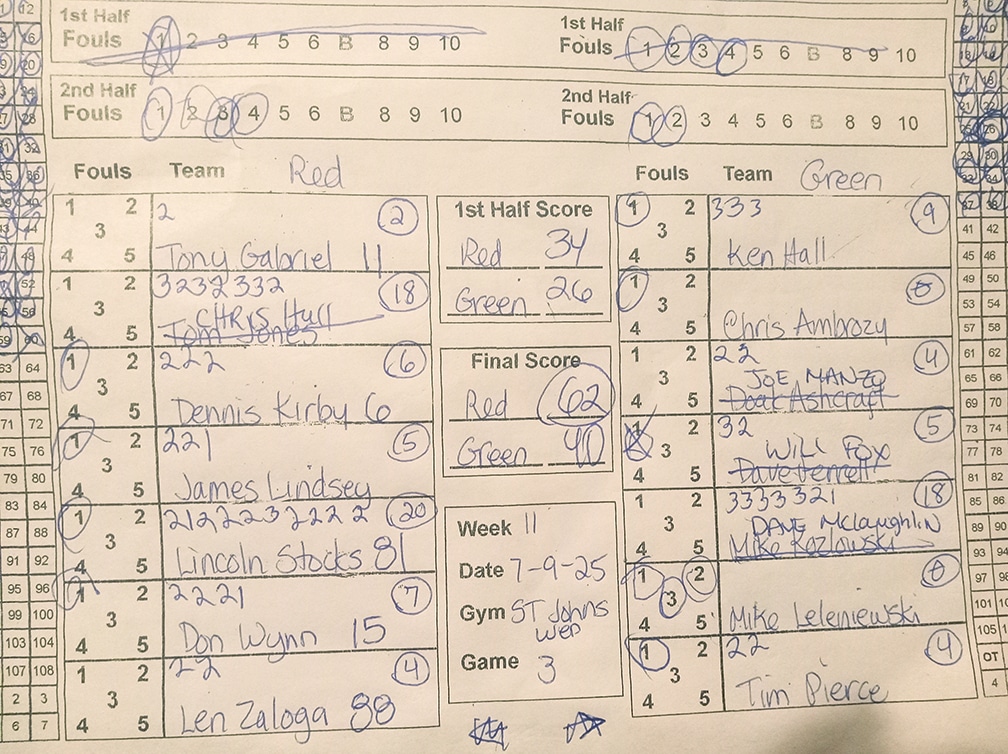 1st Half
Fouls 1 2 3 4 5 6 B 8 9 10
1st Half
Fouls 1 2 3 4 5 6 B 8 9 10
2nd Half
Fouls 1 2 3 4 5 6 B 8 9 10
2nd Half
Fouls 1 2 3 4 5 6 B 8 9 10
Fouls Team Red
1 2 3 4 5
2 2
Tony Gabriel 11
1 2 3 4 5
3232332 18
CHRIS Hull
Tom Jones
1 2 3 4 5
222 6
Dennis Kirby 6
1 2 3 4 5
221 5
James Lindsey
1 2 3 4 5
2122232222 20
Lincoln Stocks 81
1 2 3 4 5
2221 7
Don Wynn 15
1 2 3 4 5
22 4
Len Zaloga 88
1st Half Score
Red 34
Green 26
Final Score
Red 62
Green 40
Week 11
Date 7-9-25
Gym ST Johns
Wed
Game 3
Fouls Team Green
1 2 3 4 5
333 9
Ken Hall
1 2 3 4 5
0
Chris Ambrozy
1 2 3 4 5
22 4
JOE MANZO
Doak Ashcraft
1 2 3 4 5
32 5
WILL FOX
Dave Ferrell
1 2 3 4 5
3333321 18
DAVE McLaughlin
Mike Kozlowski
1 2 3 4 5
0
Mike Leleniewski
1 2 3 4 5
22 4
Tim Pierce
63 64
67 68
71 72
75 76
79 80
83 84
87 88
91 92
95 96
99 100
103 104
107 108
2 3
6 7
41 42
45 46
49 50
53 54
57 58
61 62
65 66
69 70
73 74
77 78
81 82
85 86
89 90
93
97
101
105
OT
4